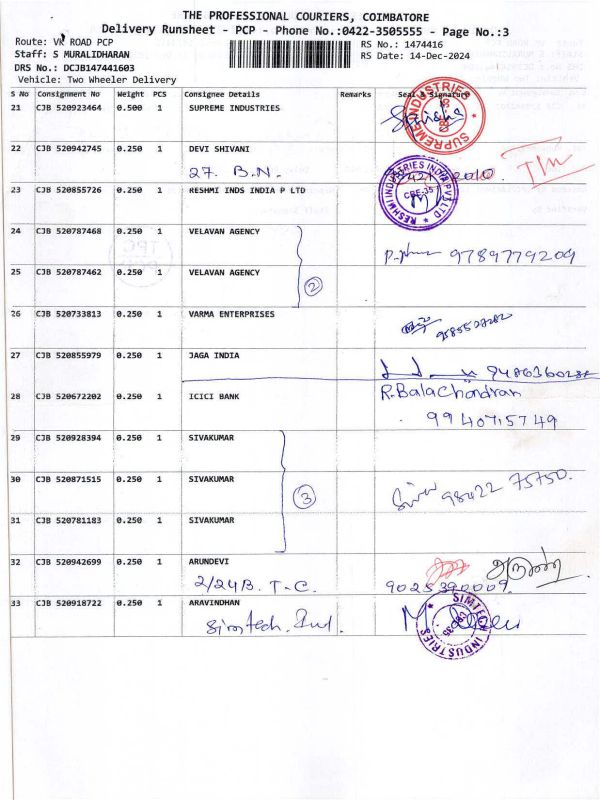 THE PROFESSIONAL COURIERS, COIMBATORE
Delivery Runsheet - PCP - Phone No.:0422-3505555 - Page No.:3
Route: VK ROAD PCP
RS No.: 1474416
Staff: S MURALIDHARAN
RS Date: 14-Dec-2024
DRS No.: DCJB147441603
Vehicle: Two Wheeler Delivery
S No Consignment No Weight PCS Consignee Details Remarks Seal & Signature
21 CJB 520923464 0.500 1 SUPREME INDUSTRIES
SUPREME INDUSTRIES
22 CJB 520942745 0.250 1 DEVI SHIVANI
27. B.N.
23 CJB 520855726 0.250 1 RESHMI INDS INDIA P LTD
RESHMI INDUSTRIES INDIA PVT LTD
CBE-35
24 CJB 520787468 0.250 1 VELAVAN AGENCY
9789779209
25 CJB 520787462 0.250 1 VELAVAN AGENCY
2
26 CJB 520733813 0.250 1 VARMA ENTERPRISES
27 CJB 520855979 0.250 1 JAGA INDIA
28 CJB 520672202 0.250 1 ICICI BANK
R.Balachandran
9940715749
29 CJB 520928394 0.250 1 SIVAKUMAR
30 CJB 520871515 0.250 1 SIVAKUMAR
3
Siva 98422 75750.
31 CJB 520781183 0.250 1 SIVAKUMAR
32 CJB 520942699 0.250 1 ARUNDEVI
2/24B. T-C.
9025390009.
33 CJB 520918722 0.250 1 ARAVINDHAN
Simtech. Ind.
SIMTECH INDUSTRIES